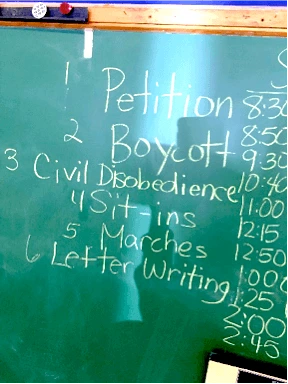 1 Petition 8:30
2 Boycott 8:50
9:30
3 Civil Disobedience 10:40
4 Sit-ins 11:00
12:15
5 Marches 12:50
6 Letter Writing 1:00
1:25
2:00
2:45